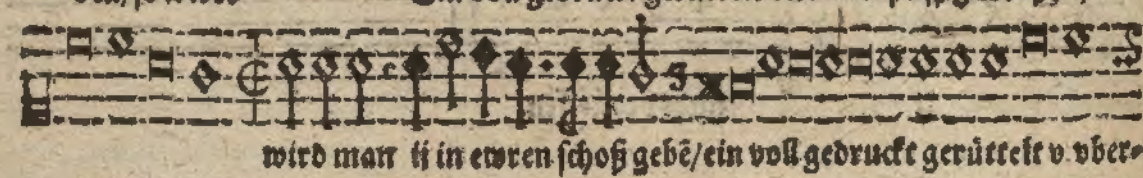 wird man ij in ewren schoß gebē/ein voll gedruckt gerüttelt v vber=